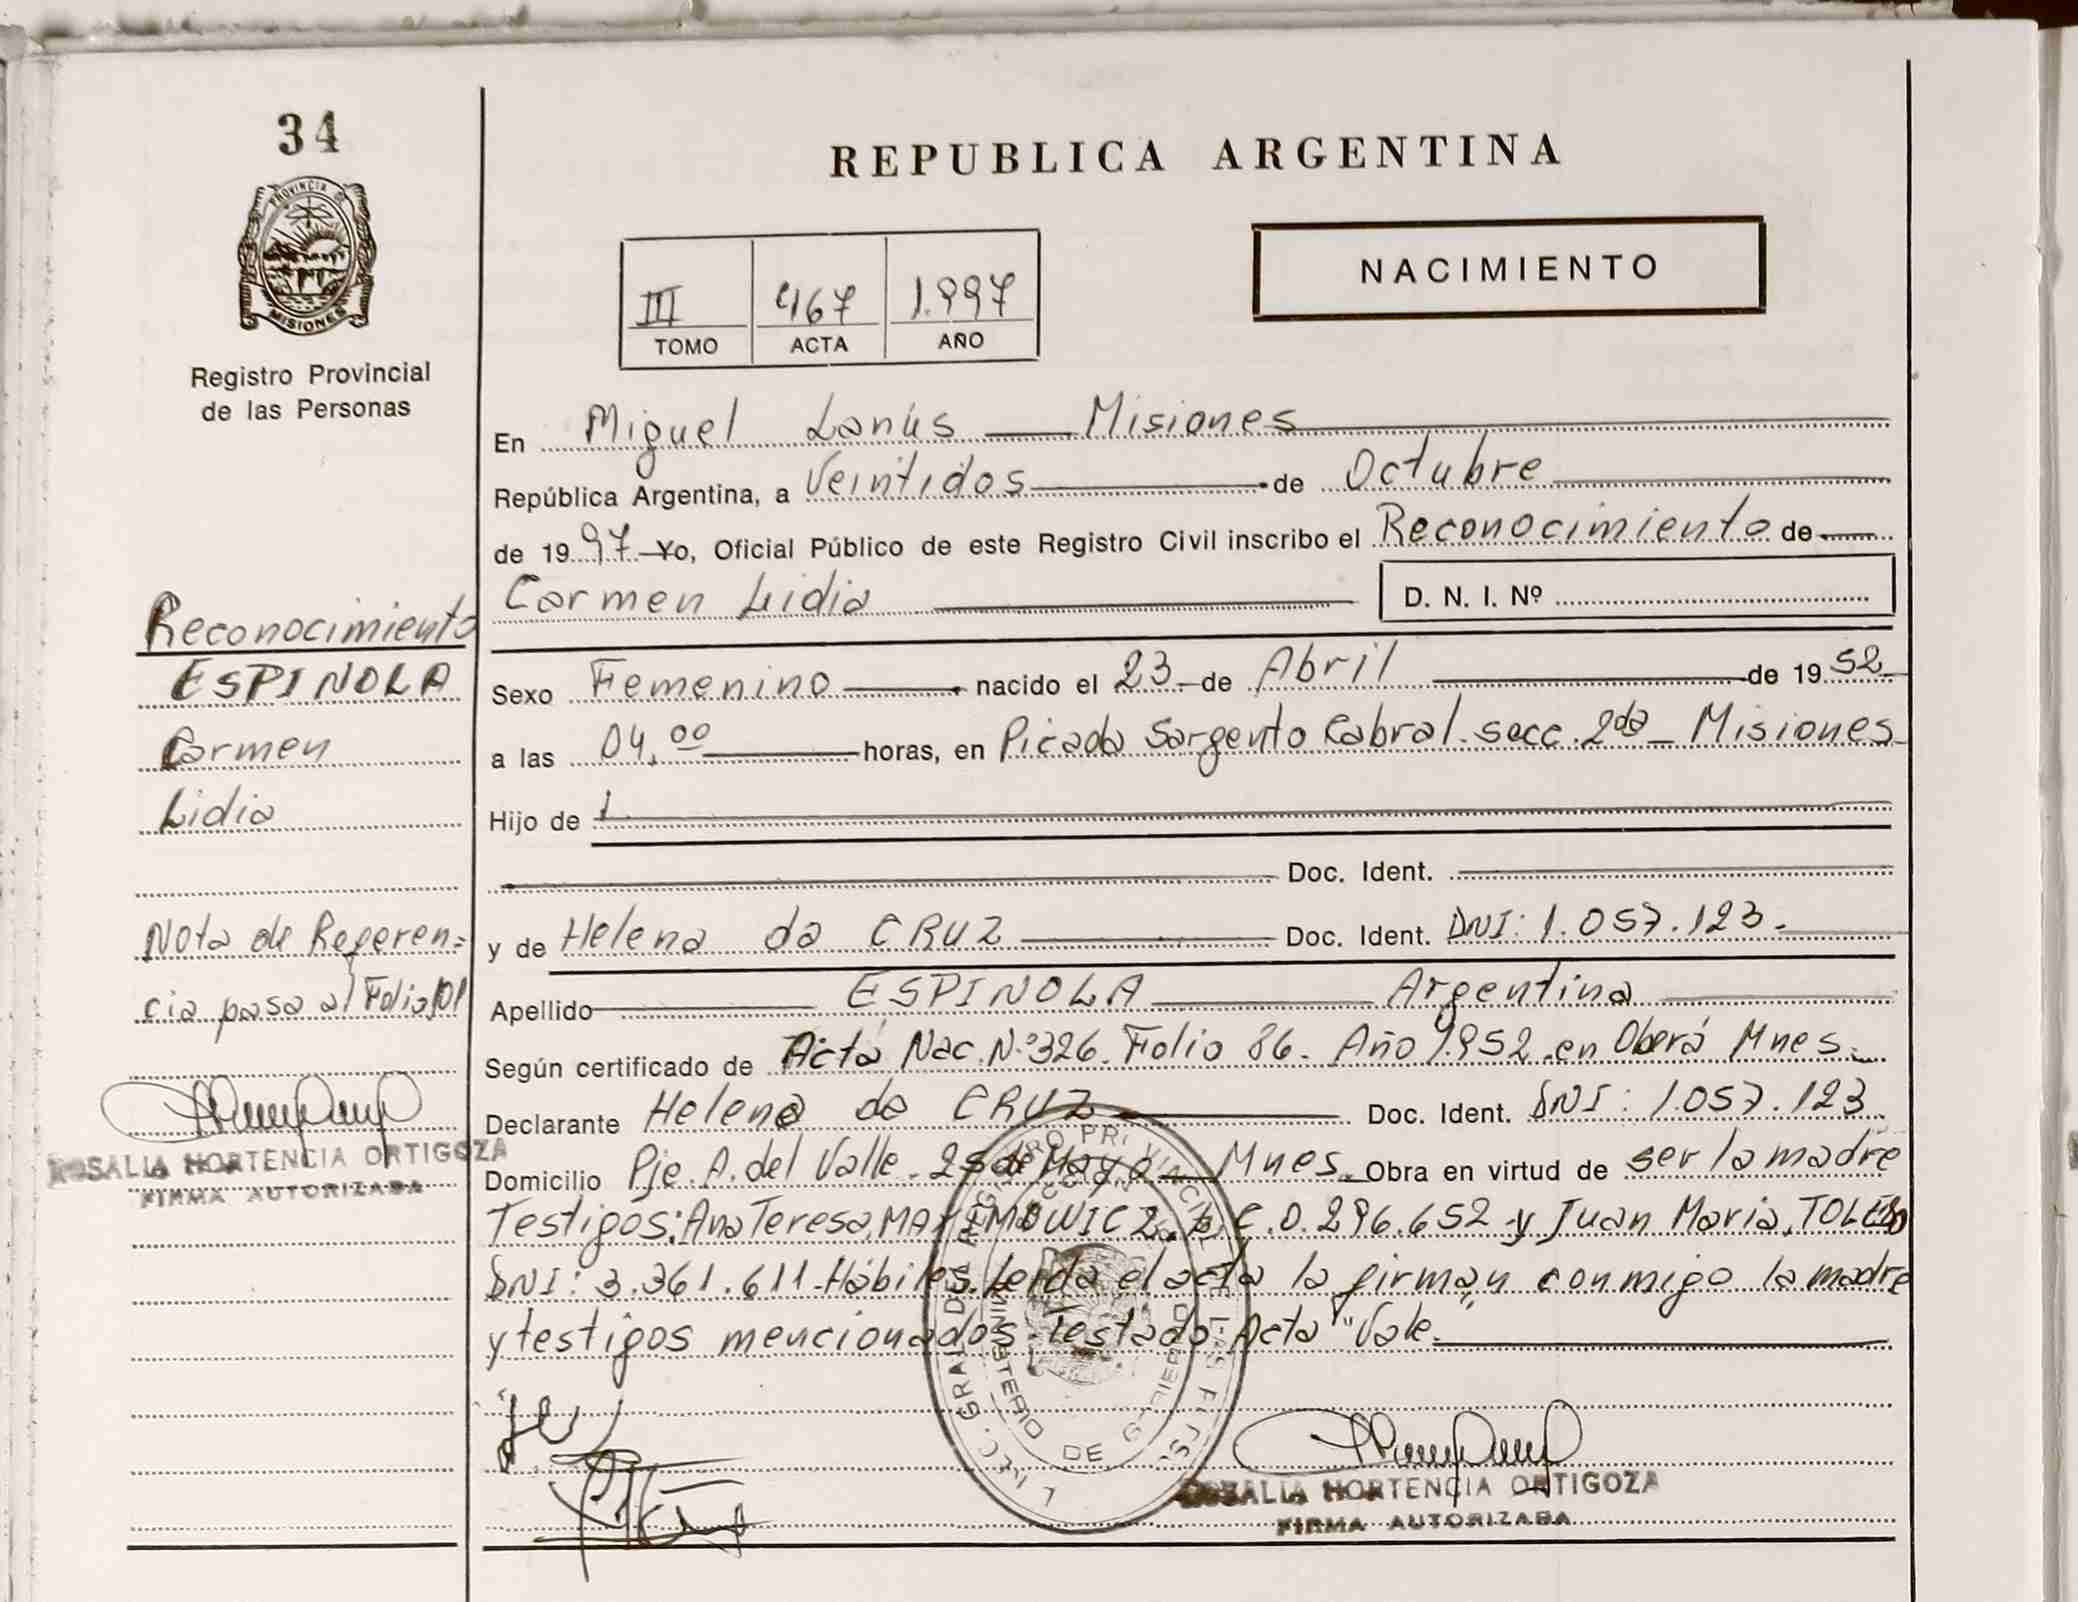 34
PROVINCIA DE
MISIONES
Registro Provincial
de las Personas
REPUBLICA ARGENTINA
NACIMIENTO
III 467 1.997
TOMO ACTA AÑO
En Miguel Lanús Misiones
República Argentina, a Veintidos de Octubre
de 1997 Yo, Oficial Público de este Registro Civil inscribo el Reconocimiento de
Carmen Lidia D. N. I. Nº
Sexo Femenino nacido el 23 de Abril de 1952
a las 04,00 horas, en Picada Sargento Cabral. secc. 2da - Misiones
Hijo de
Doc. Ident.
y de Helena da CRUZ Doc. Ident. DNI: 1.057.123.
Apellido ESPINOLA Argentina
Según certificado de Acta Nac. N:º 326. Folio 86. Año 1.952 en Oberá Mnes.
Declarante Helena da CRUZ Doc. Ident. DNI: 1.057.123
Domicilio Pje. A. del Valle. 25 de Mayo Mnes. Obra en virtud de ser la madre
Testigos: Ana Teresa, C.D. 296.652 y Juan Maria, TOLEDO
DNI: 3.361.611. Hábiles. Leída el acta la firman conmigo la madre
y testigos mencionados. Testado: Acta "Vale.
Reconocimiento
ESPINOLA
Carmen
Lidia
Nota de Referen=
cia pasa al Folio 101
ROSALIA HORTENCIA ORTIGOZA
FIRMA AUTORIZADA
MINISTERIO DE GOBIERNO
ROSALIA HORTENCIA ORTIGOZA
FIRMA AUTORIZADA